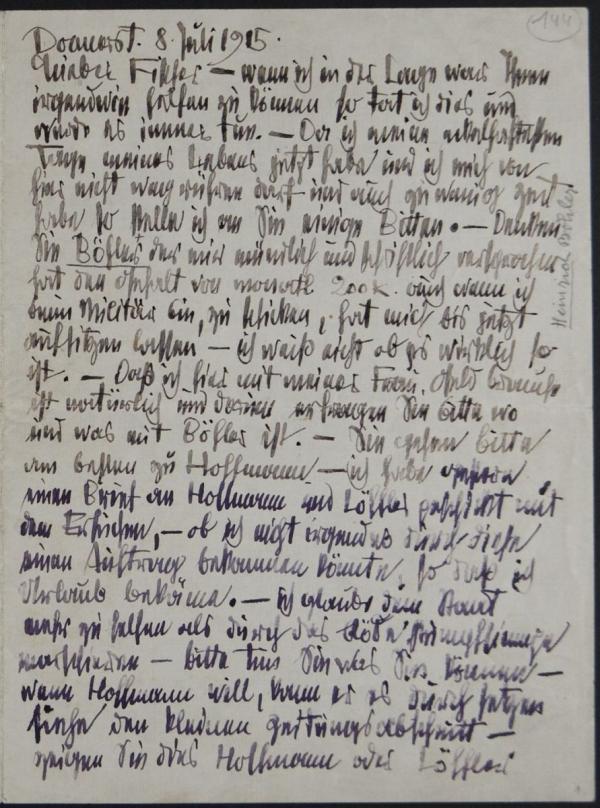 144
Donnerst. 8. Juli 1915.
Lieber — wenn ich in der Lage war Ihnen
irgendwie helfen zu können so tat ich dies und
werde es immer tun. — Da ich meine ekelhaftesten
Tage meines Lebens jetzt habe und ich mich von
hier nicht wegrühren darf und auch zu wenig Zeit
habe so stelle ich an Sie einige Bitten. — Denken
Sie Böhler der mir mündlich und schriftlich versprochen
hat den Gehalt von monatl 200 K. auch wenn ich
beim Militär bin, zu schicken, hat mich bis jetzt
aufsitzen lassen — ich weiß nicht ob es wirklich so
ist. — Daß ich hier mit meiner Frau, Geld brauche
ist natürlich und darum erfragen Sie bitte wo
und was mit Böhler ist. — Sie gehen bitte
am besten zu Hoffmann — ich habe
einen Brief an Hoffmann und Löffler geschickt mit
dem Ersuchen, — ob ich nicht durch diese
einen Auftrag bekommen könnte, so daß ich
Urlaub bekäme. — ich glaube dem Staat
mehr zu helfen als durch das blöde
— bitte tun Sie was Sie können —
wenn Hoffmann will, kann er es durchsetzen
siehe den kleinen Zeitungsabschnitt —
zeigen Sie dies Hoffmann oder Löffler
Heinrich Böhler